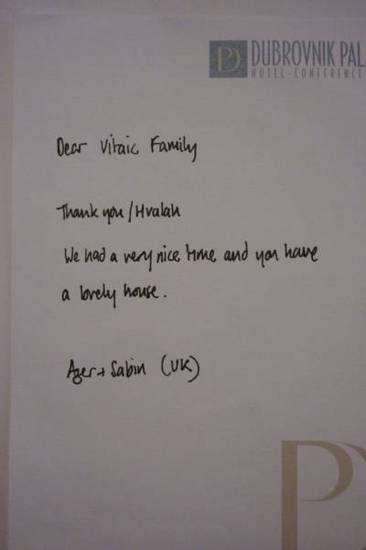 DUBROVNIK PAL
HOTEL · CONFERENCE
Dear Vitaic Family
Thank you / Hvalah
We had a very nice time and you have
a lovely house.
Ager + Sabin (UK)